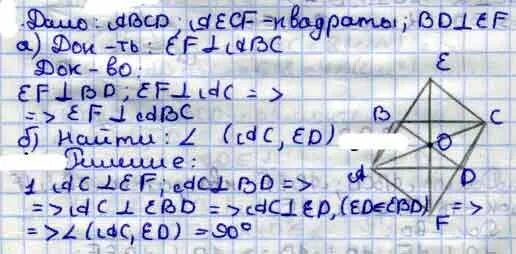 Дано: ABCD; AECF = квадраты; BD⊥EF
а) Док-ть: EF⊥ABC
Док-во:
EF⊥BD; EF⊥AC =>
=> EF⊥ABC
б) Найти: ∠ (AC, ED)
Решение:
1 AC⊥EF; AC⊥BD =>
=> AC⊥EBD => AC⊥ED, (ED∈EBD) =>
=> ∠(AC, ED) = 90°
E
B
C
O
A
D
F